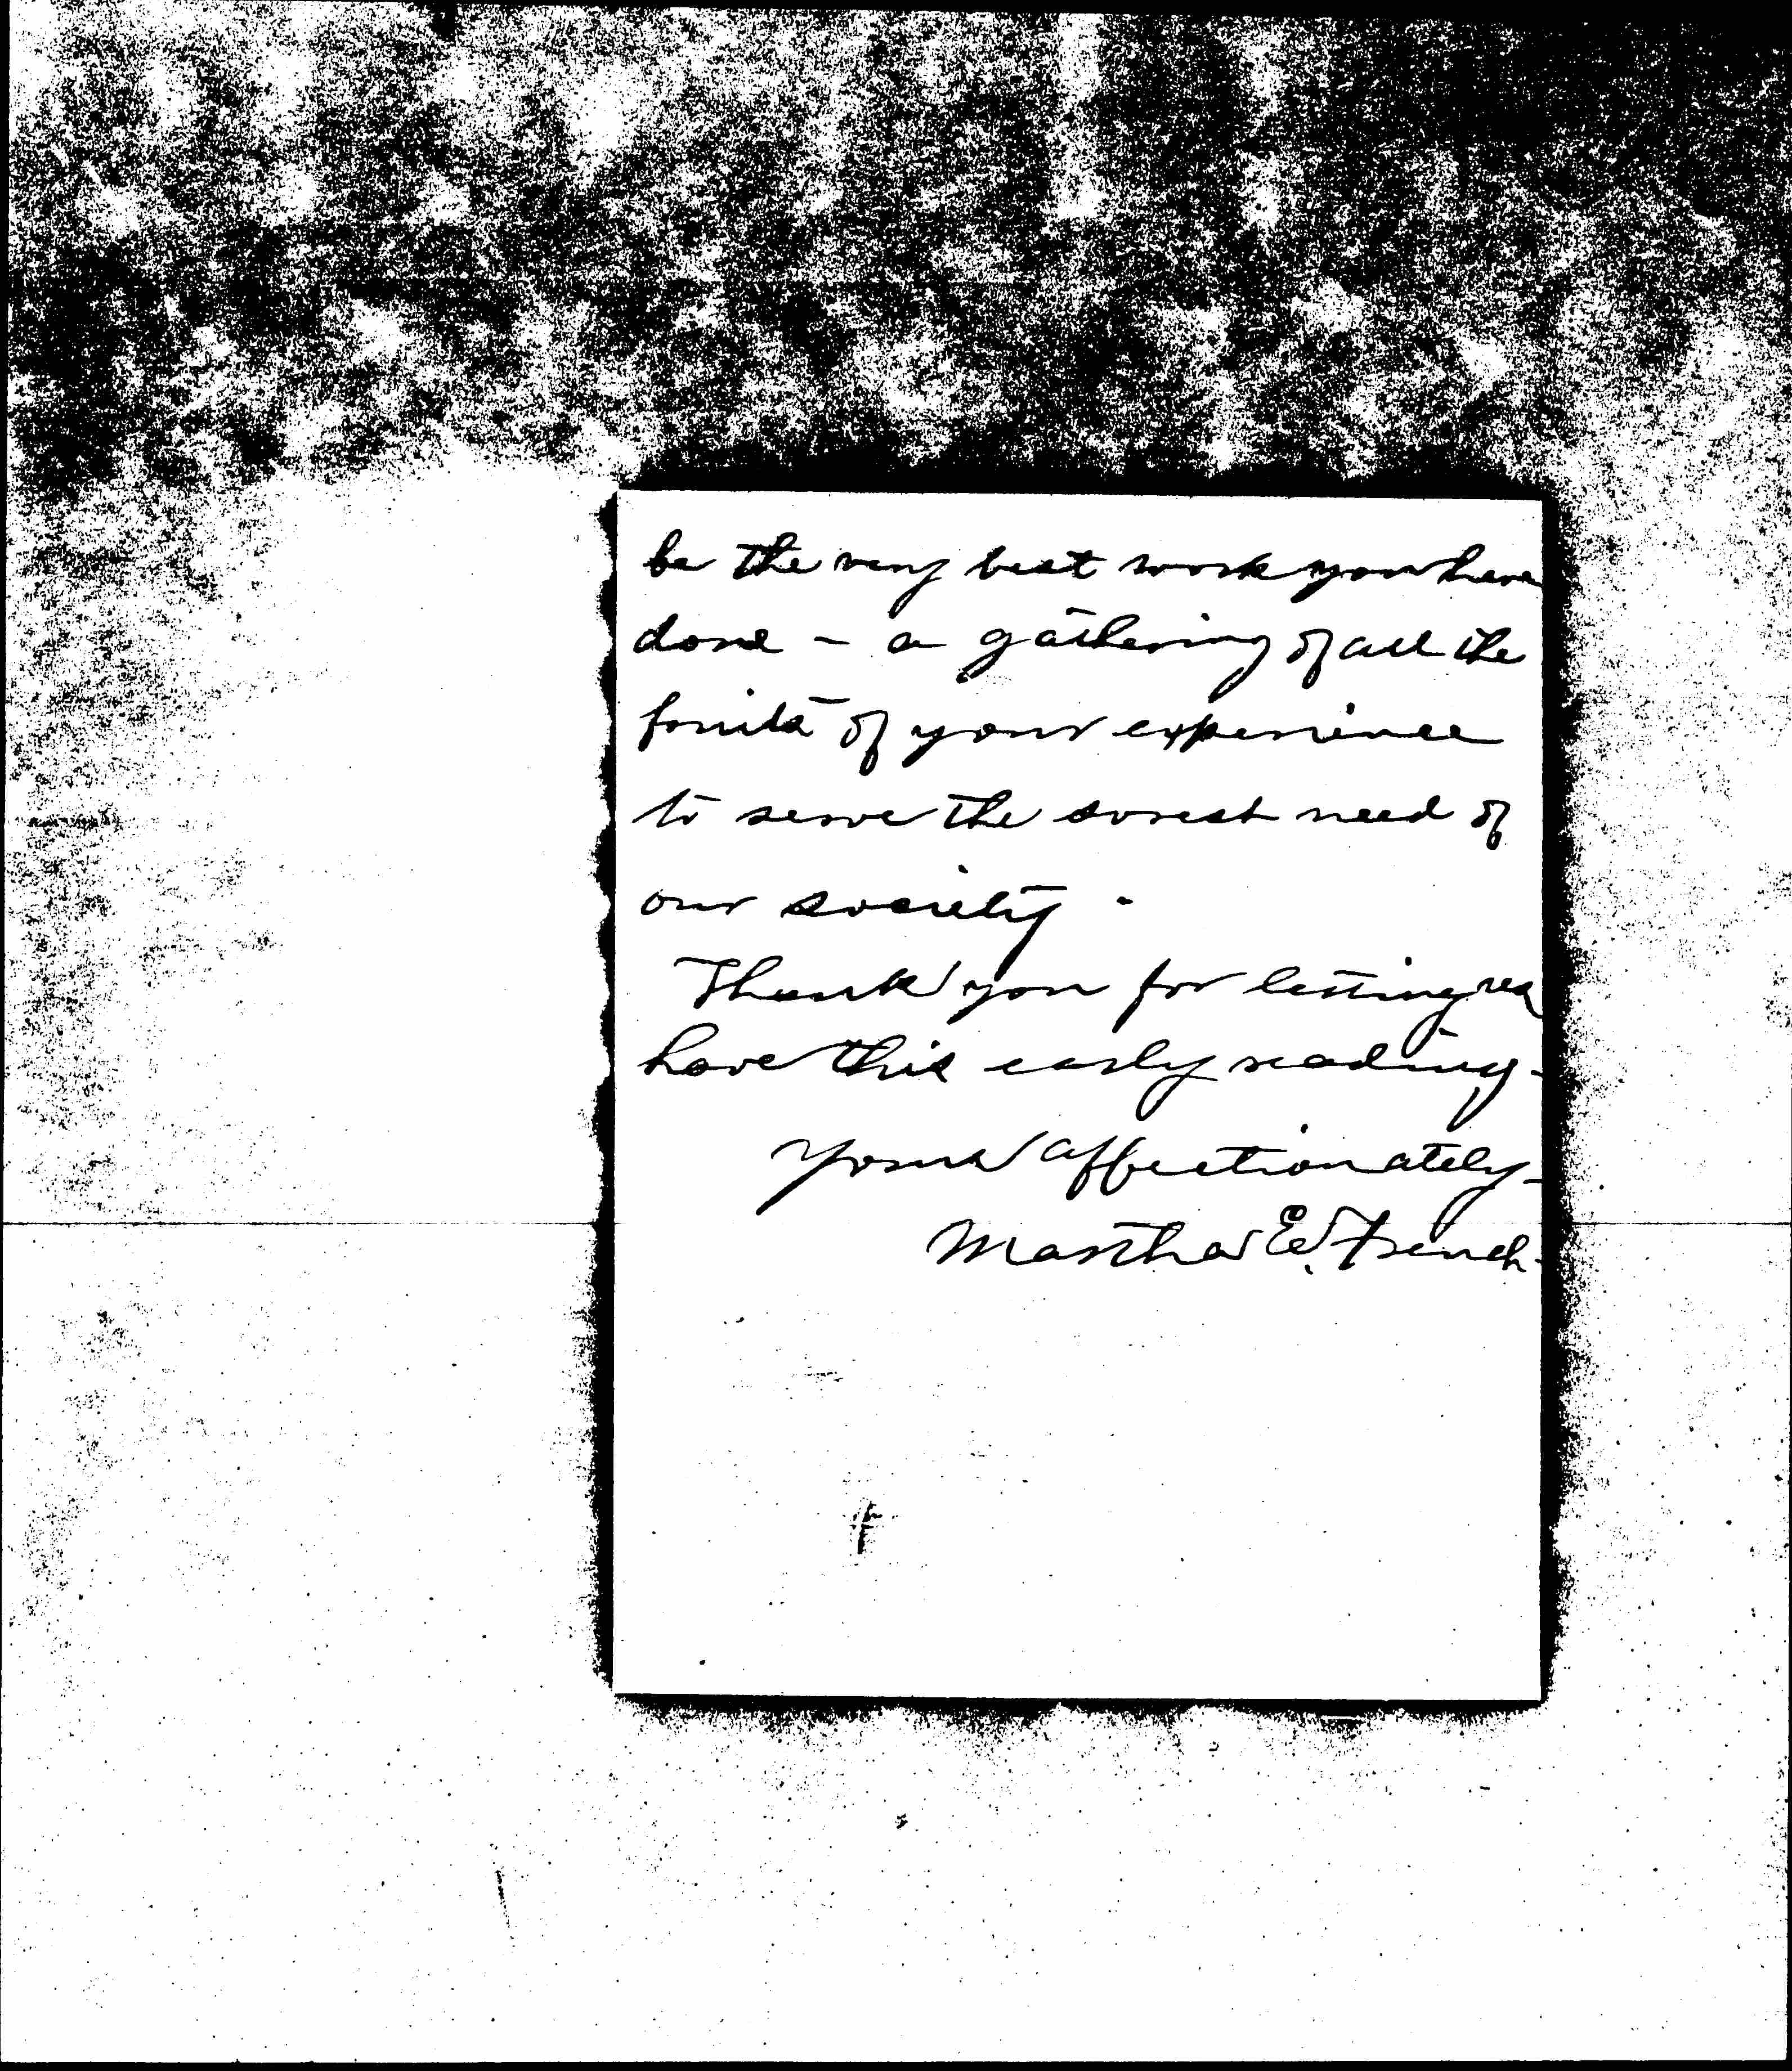 be the very best work you have
done - a gathering of all the
fruits of your experience
to serve the sorest need of
our society.
Thank you for letting us
have this early reading.
Yours affectionately -
Martha E. French.